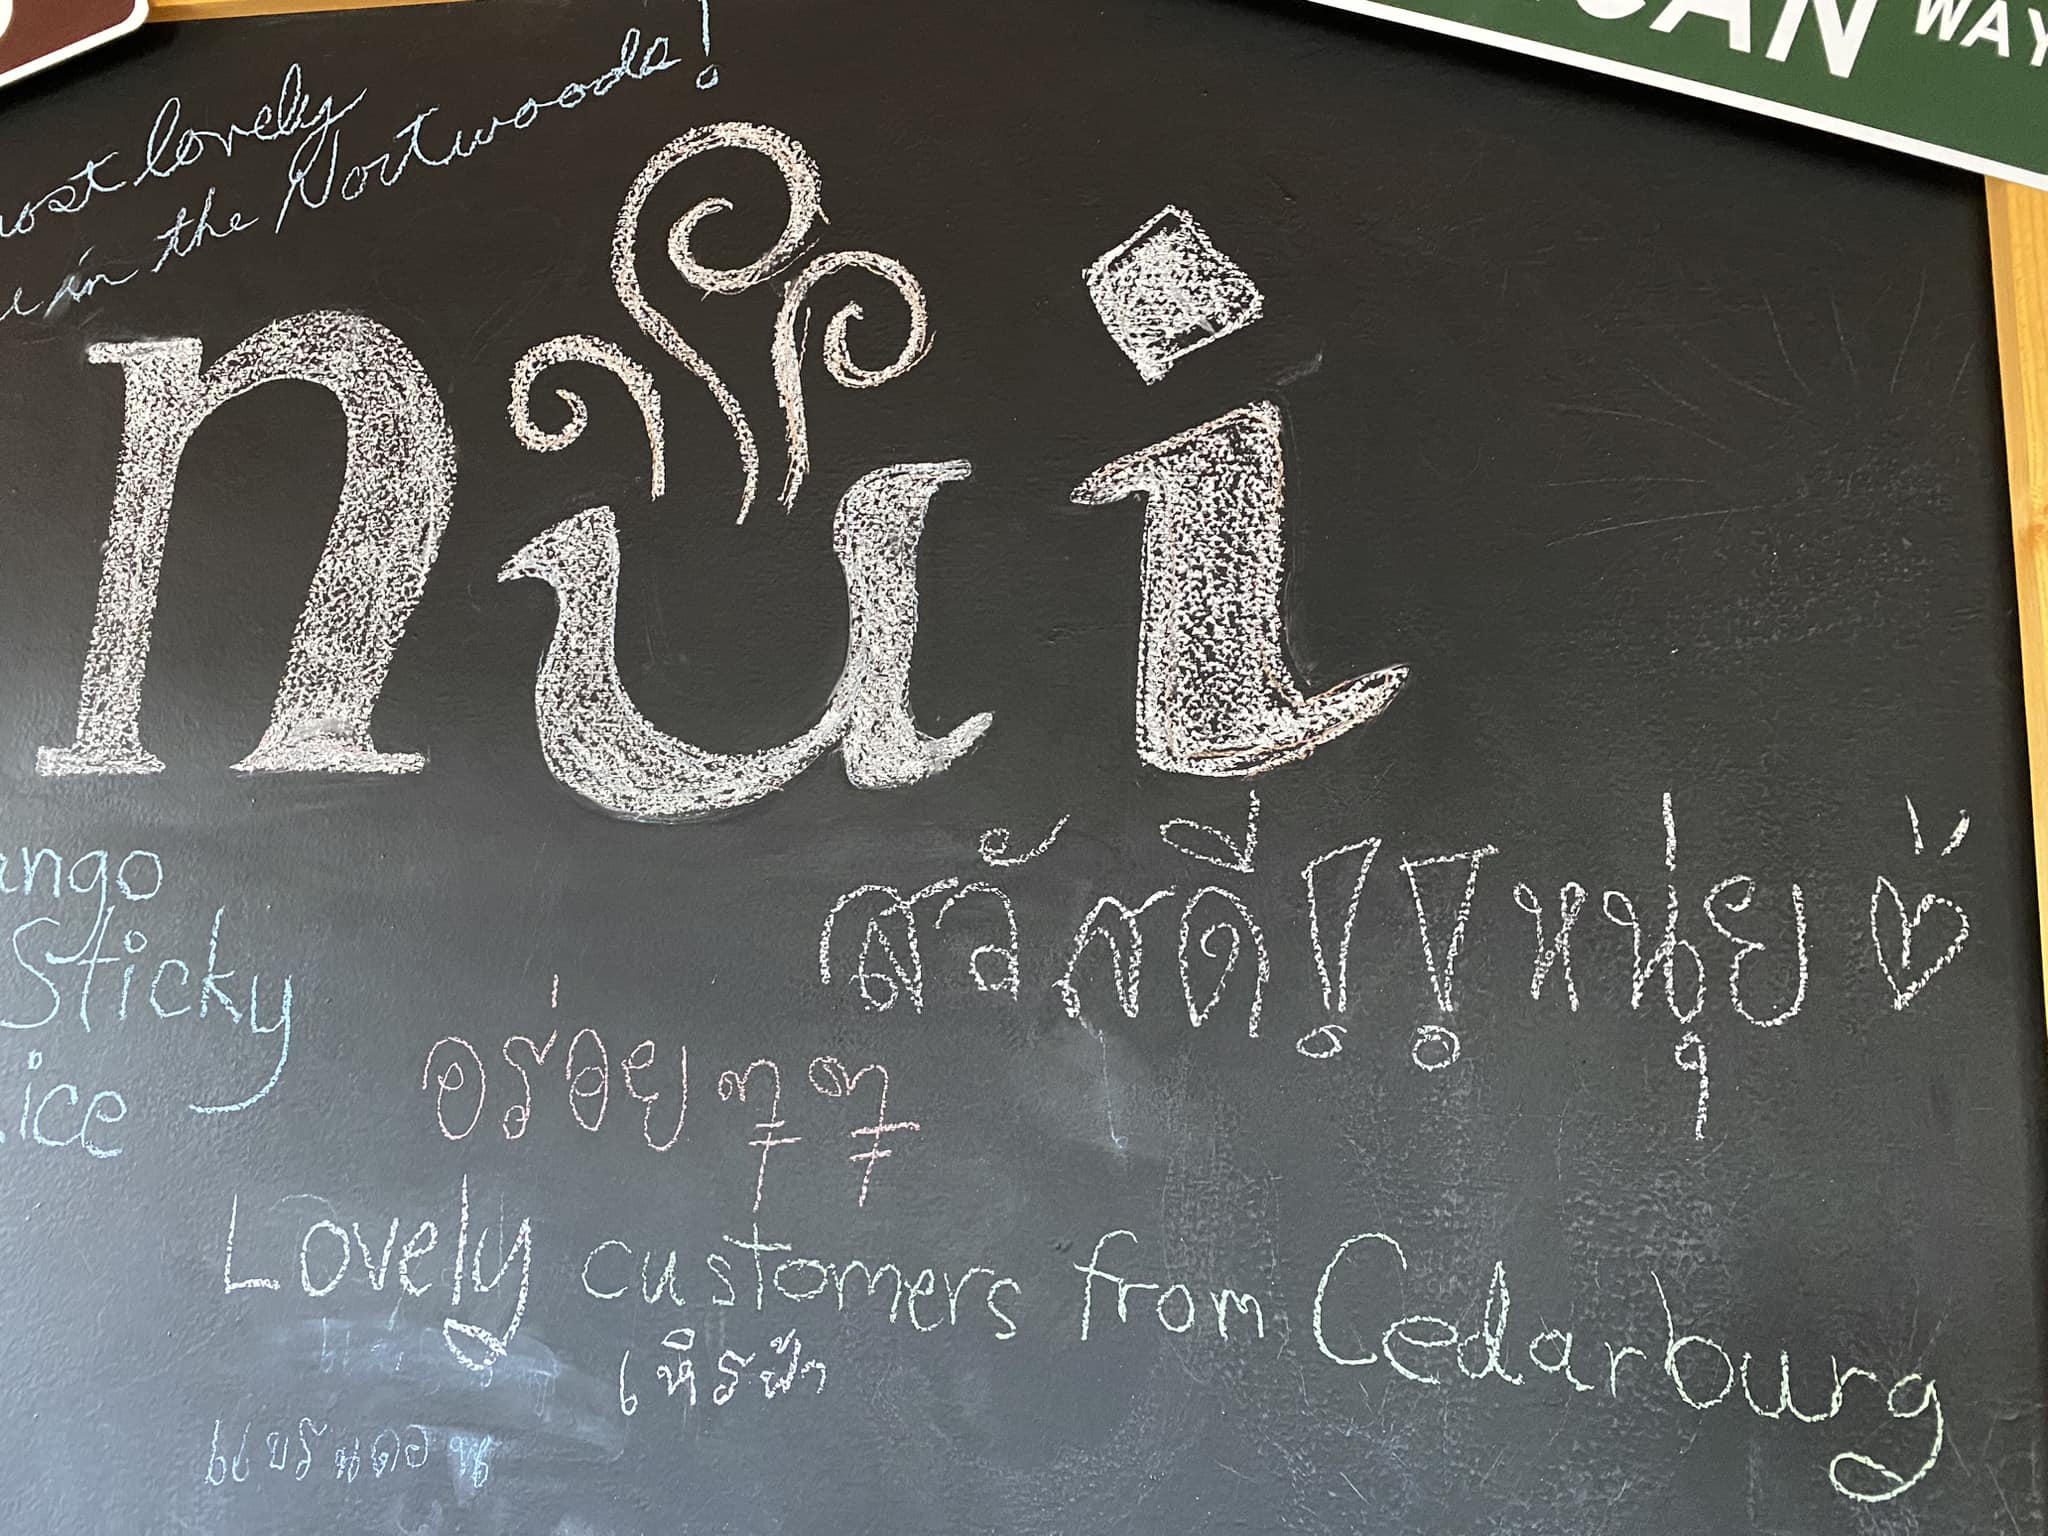 CAN WAY
most lovely
in the Nortwoods!
nui
ango
Sticky
ice
สวัสดี!! หนุ่ย
อร่อย ๆ ๆ
Lovely customers from Cedarburg
เหิรฟ้า
แบรนดอน